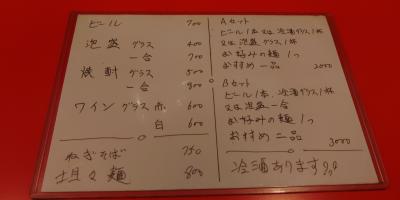 ビール 700
泡盛 グラス 400
一合 700
焼酎 グラス 500
一合 800
ワイン グラス 赤 600
白 600
ねぎそば 750
担々麺 800
Aセット
ビール1本 又は 冷酒グラス1杯
又は 泡盛 グラス1杯
お好みの麺 1つ
おすすめ一品
2000
Bセット
ビール1本、冷酒グラス1杯
又は 泡盛 一合
お好みの麺 1つ
おすすめ 二品
3000
冷酒あります